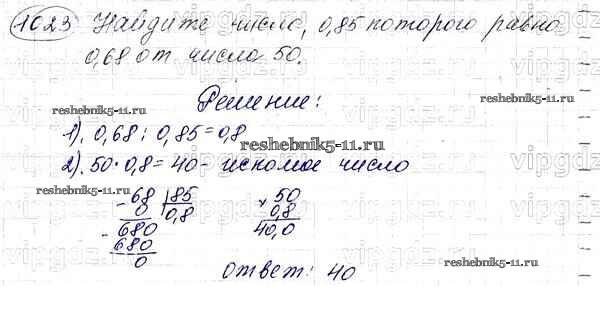 1023 Найдите число, 0,85 которого равно
0,68 от числа 50.
Решение:
1). 0,68 : 0,85 = 0,8
2). 50 · 0,8 = 40 - искомое число
-68 |85
0 0,8
-680
680
0
× 50
0,8
40,0
Ответ: 40
reshebnik5-11.ru
reshebnik5-11.ru
reshebnik5-11.ru
reshebnik5-11.ru
reshebnik5-11.ru
vipgdz